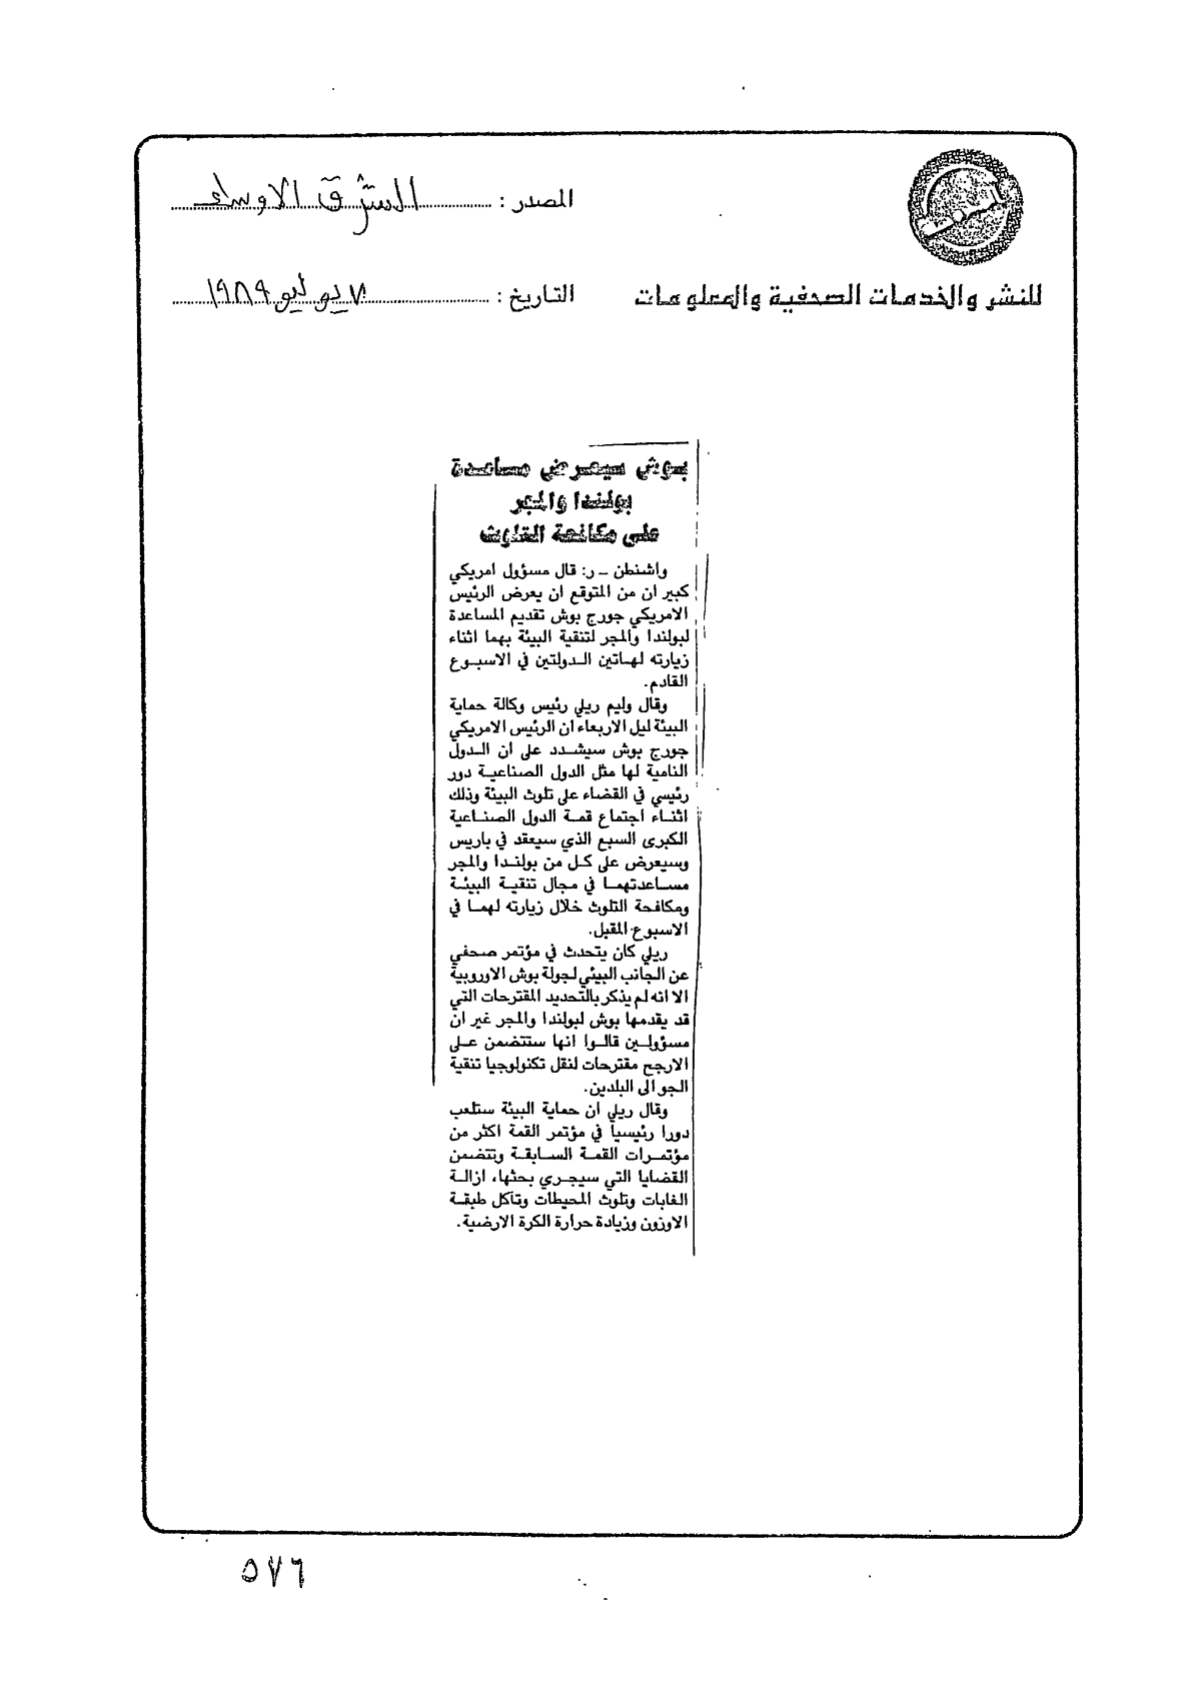 المصدر : الشرق الاوسط
للنشر والخدمات الصحفية والمعلومات
التاريخ : ٧ يوليو ١٩٨٩
بوش سيعرض مساعدة
بولندا والمجر
على مكافحة التلوث
واشنطن ــ ر: قال مسؤول امريكي
كبير ان من المتوقع ان يعرض الرئيس
الامريكي جورج بوش تقديم المساعدة
لبولندا والمجر لتنقية البيئة بهما اثناء
زيارته لهاتين الدولتين في الاسبوع
القادم.
وقال وليم ريلي رئيس وكالة حماية
البيئة ليل الاربعاء ان الرئيس الامريكي
جورج بوش سيشدد على ان الدول
النامية لها مثل الدول الصناعية دور
رئيسي في القضاء على تلوث البيئة وذلك
اثناء اجتماع قمة الدول الصناعية
الكبرى السبع الذي سيعقد في باريس
وسيعرض على كل من بولندا والمجر
مساعدتهما في مجال تنقية البيئة
ومكافحة التلوث خلال زيارته لهما في
الاسبوع المقبل.
ريلي كان يتحدث في مؤتمر صحفي
عن الجانب البيئي لجولة بوش الاوروبية
الا انه لم يذكر بالتحديد المقترحات التي
قد يقدمها بوش لبولندا والمجر غير ان
مسؤولين قالوا انها ستتضمن على
الارجح مقترحات لنقل تكنولوجيا تنقية
الجو الى البلدين.
وقال ريلي ان حماية البيئة ستلعب
دورا رئيسيا في مؤتمر القمة اكثر من
مؤتمرات القمة السابقة وتتضمن
القضايا التي سيجري بحثها، ازالة
الغابات وتلوث المحيطات وتآكل طبقة
الاوزون وزيادة حرارة الكرة الارضية.
٥٧٦